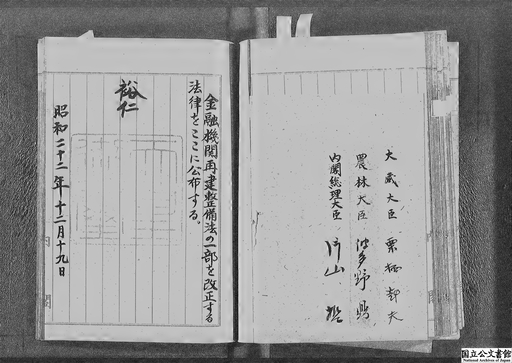 金融機関再建整備法の一部を改正する
法律をここに公布する。
裕仁
昭和二十二年十二月十九日
大蔵大臣 栗栖赳夫
農林大臣 波多野鼎
内閣総理大臣 片山哲
国立公文書館
National Archives of Japan